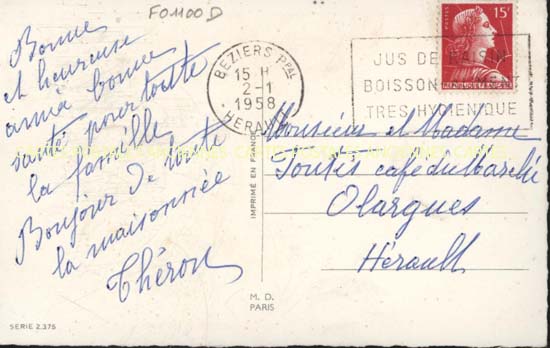 FO1100D
Bonne
et heureuse
année bonne
santé pour toute
la famille
Bonjour de toute
la maisonnée
Théron
SERIE 2.375
BEZIERS Ppal
15 H
2-1
1958
HERAULT
JUS DE RAISIN
BOISSON
TRES HYGIENIQUE
POSTES
15F
REPUBLIQUE FRANÇAISE
IMPRIMÉ EN FRANCE
M. D.
PARIS
Monsieur et Madame
café du Marché
Olargues
Hérault